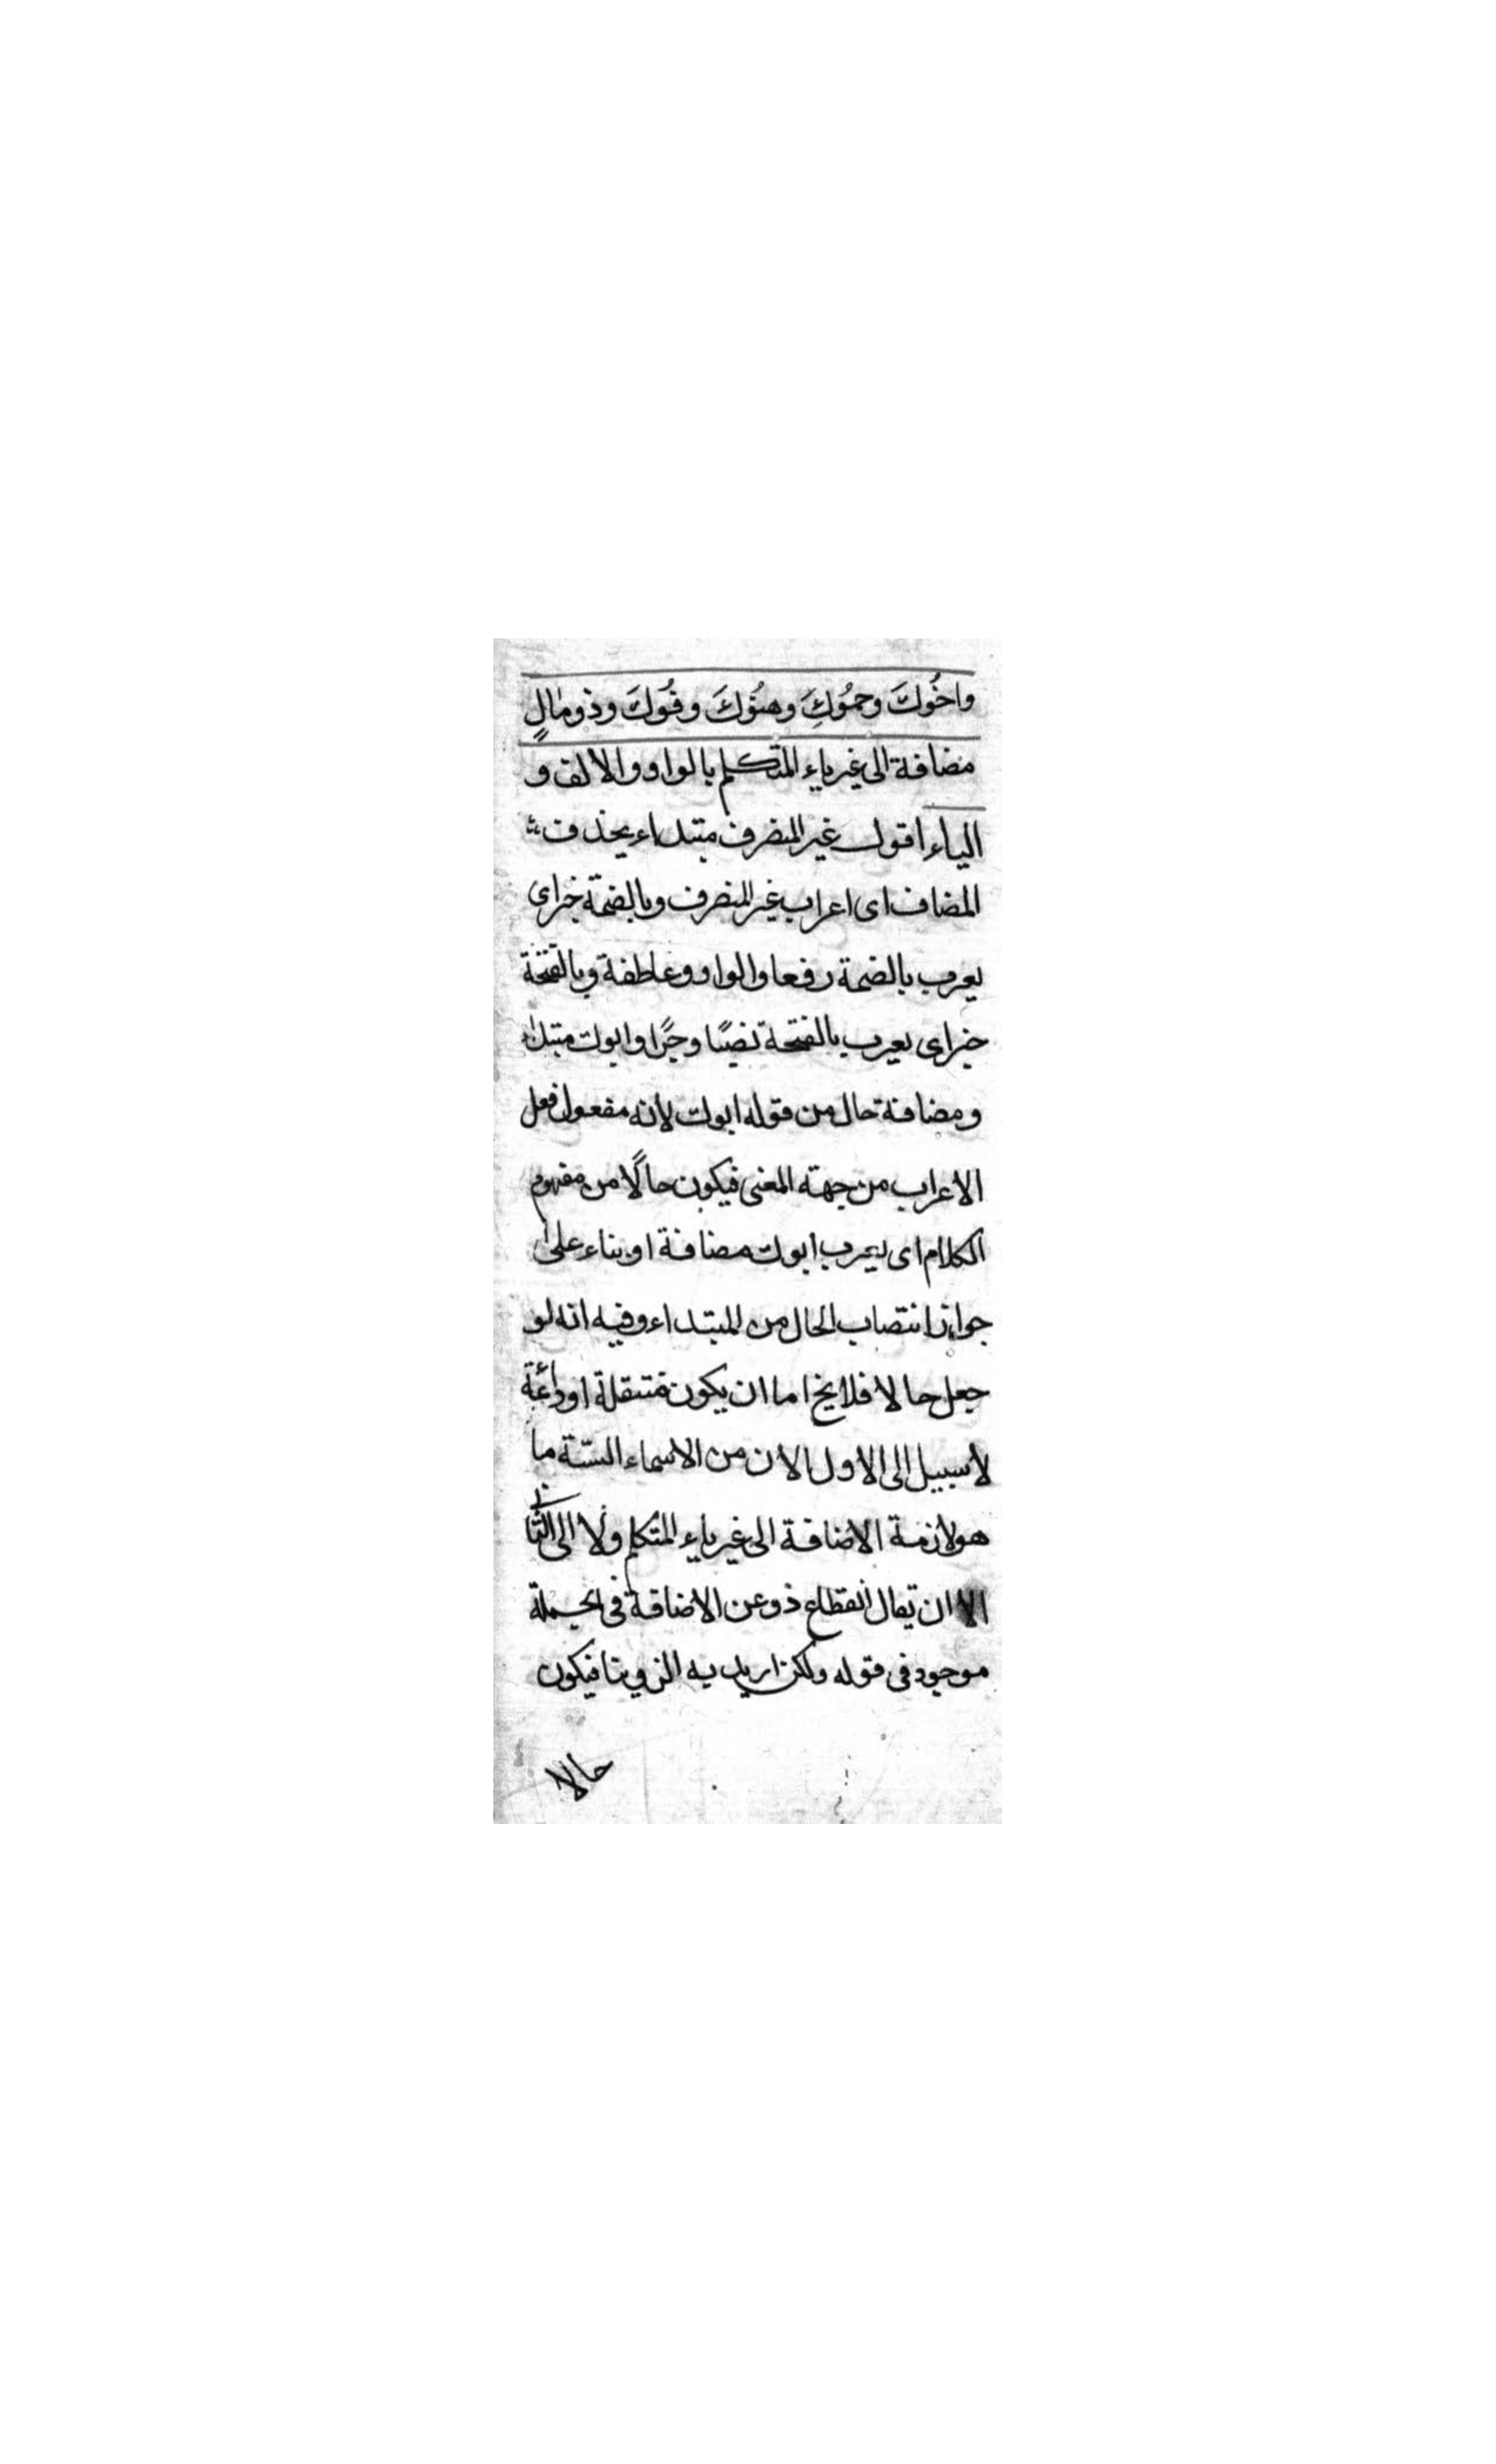 واخُوكَ وحمُوكِ وهنُوكَ وفُوكَ وذو مالٍ
مضافة الى غير ياء المتكلم بالواو والالف و
الياء اقول غير المنصرف مبتداء بحذف
المضاف اى اعراب غير المنصرف وبالضمّة خبر اى
يعرب بالضمة رفعا والواو وعاطفة وبالفتحة
خبر اى يعرب بالفتحة نصبًا وجرًّا وابوك مبتداء
ومضافة حال من قوله ابوك لانه مفعول فعل
الاعراب من جهة المعنى فيكون حالًا من مفهوم
الكلام اى يعرب ابوك مضافة او بناء على
جواز انتصاب الحال من المبتداء وفيه انه لو
جعل حالا فلا يخ اما ان يكون منتقلة او دائمة
لا سبيل الى الاول الان من الاسماء الستّة ما
هو لازمة الاضافة الى غير ياء المتكلم ولا الى الثانى
الا ان يقال انقطاع ذو عن الاضافة فى الجملة
موجود فى قوله ولكن اريد به الذوينا فيكون
حالا